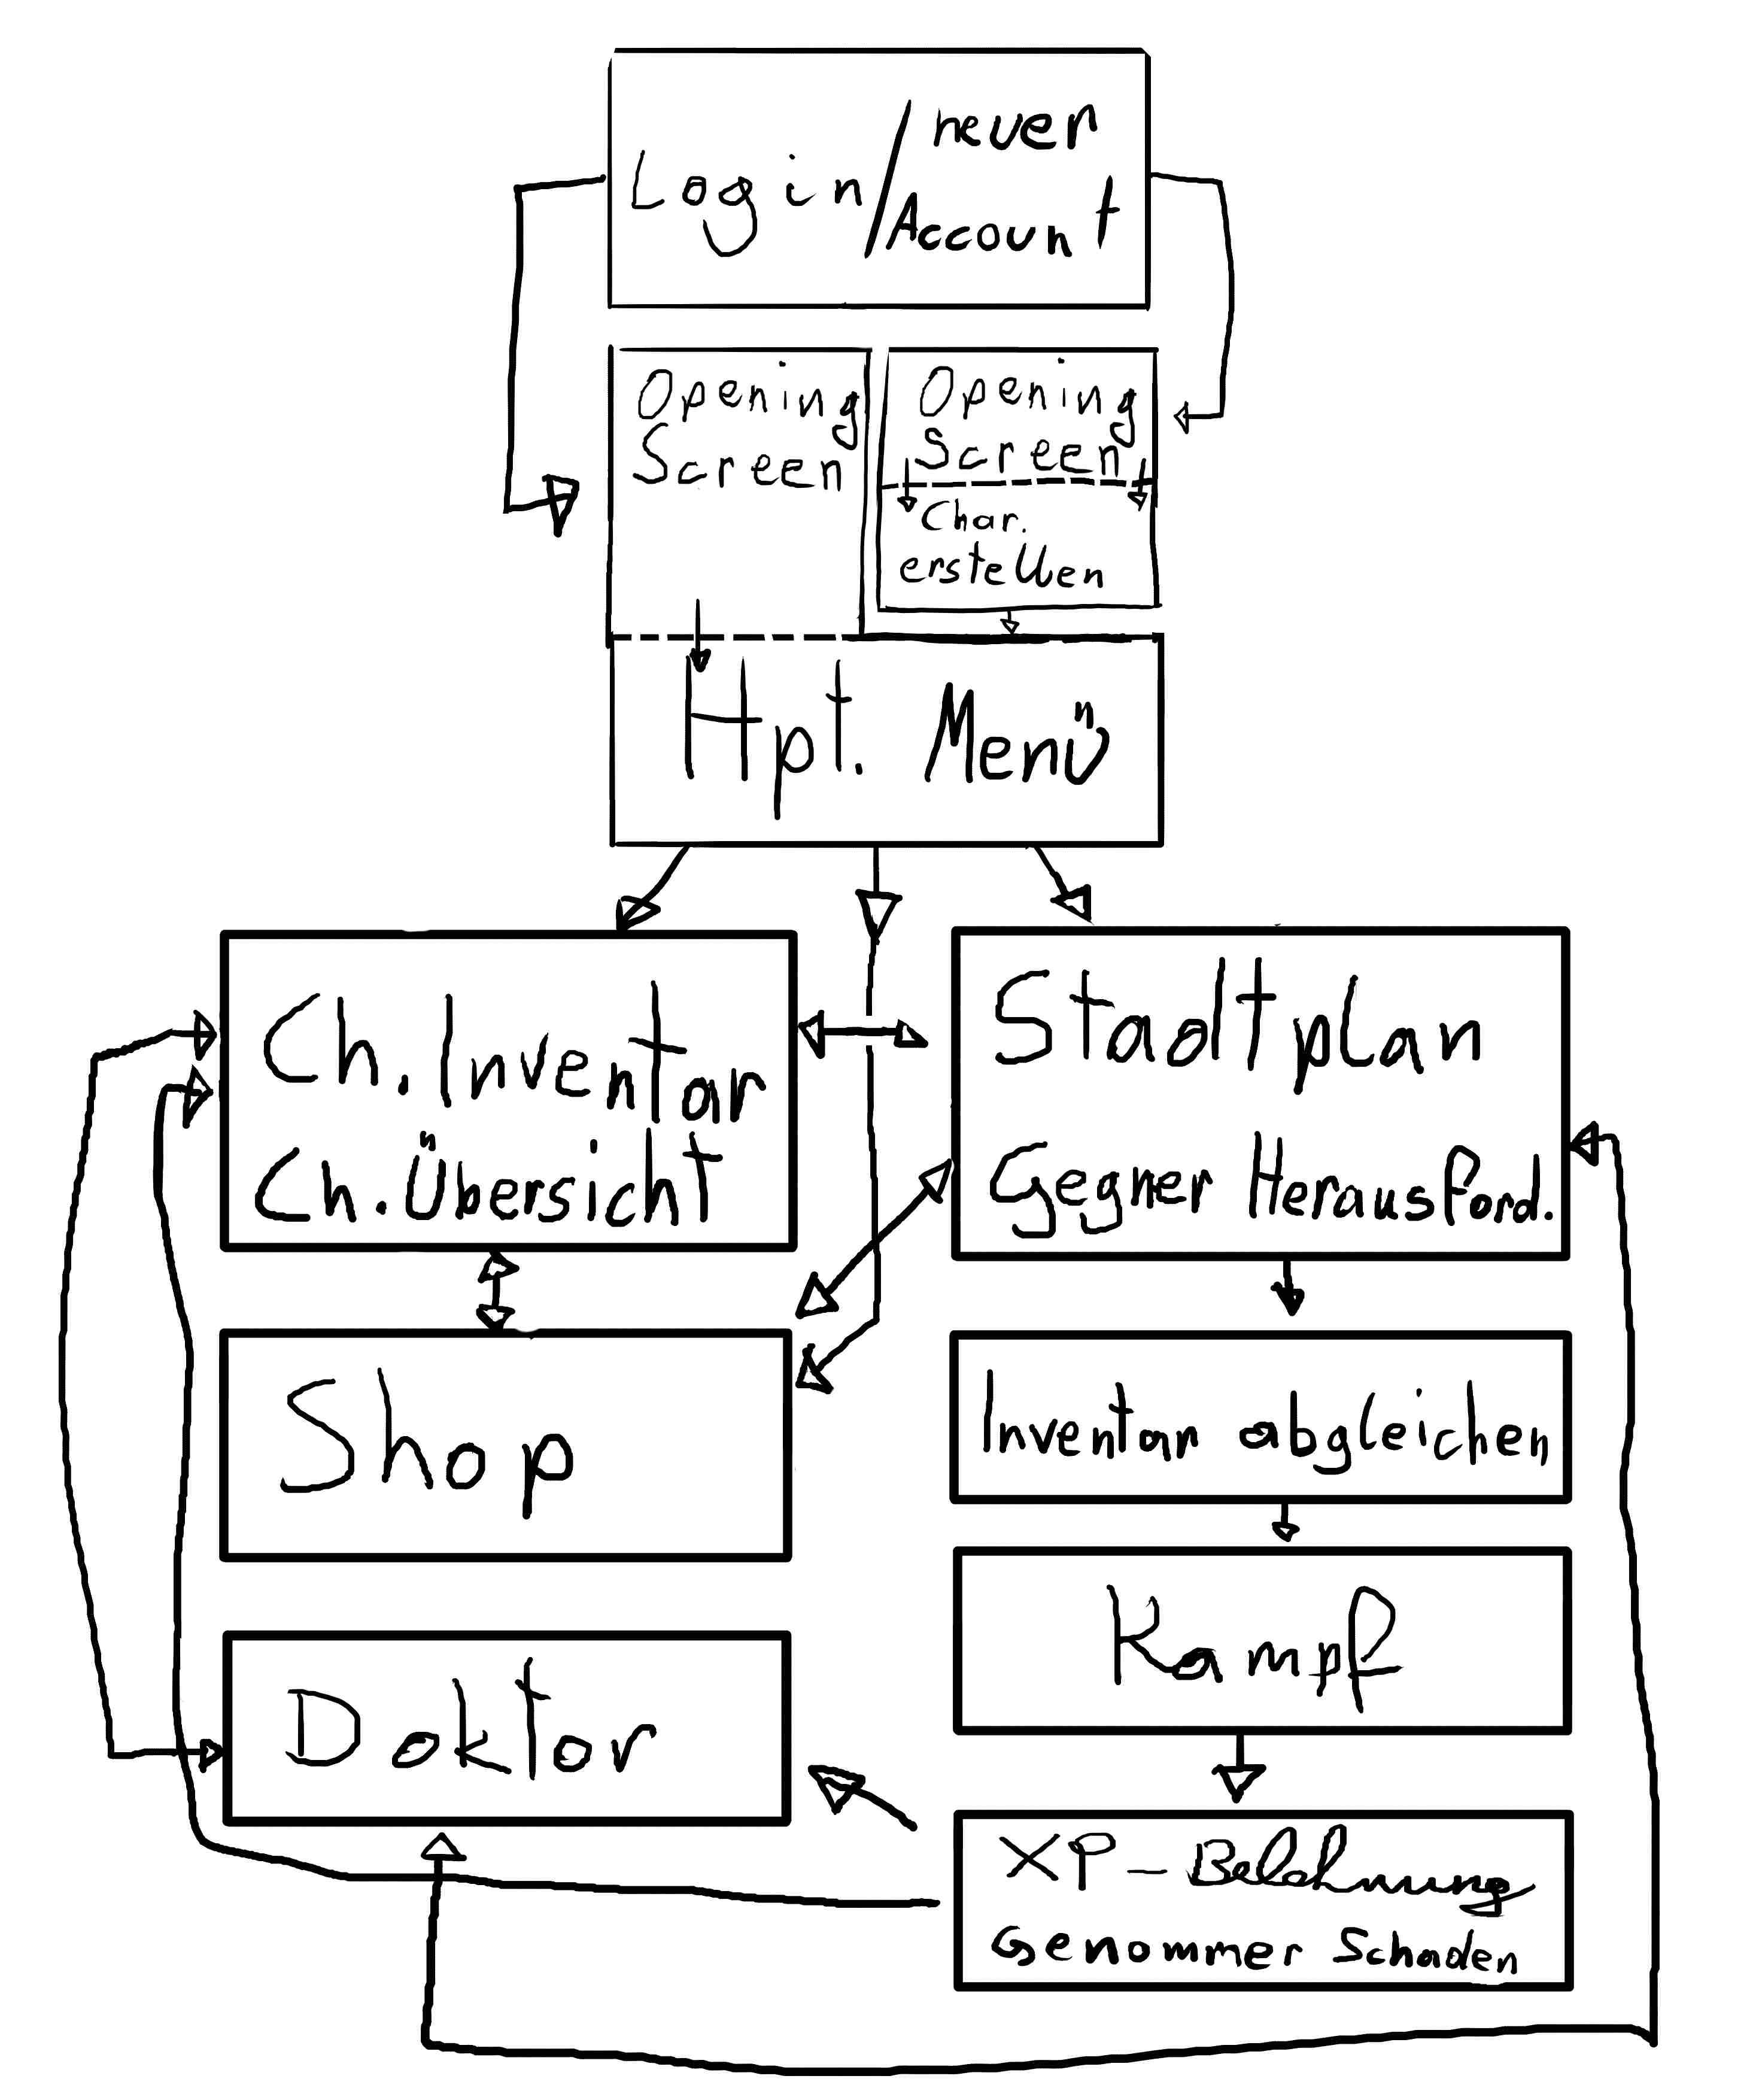 Login/neuer Account
Opening
Screen
Opening
Screen
Char.
erstellen
Hpt. Menü
Ch. Inventar
Ch. Übersicht
Stadtplan
Gegner Herausford.
Shop
Inventar abgleichen
Kampf
Doktor
XP-Belohnung
Genommer Schaden